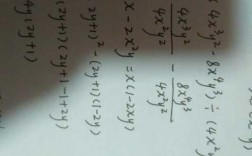 4x³y² - 8x⁴y³ ÷ (4x²y
4x³y²/4x²y² - 8x⁴y³/4x²y²
x - 2x²y = x(1-2xy)
2y+1)² - (2y+1)(1-2y)
(2y+1)(2y+1-1+2y)
4y(2y+1)